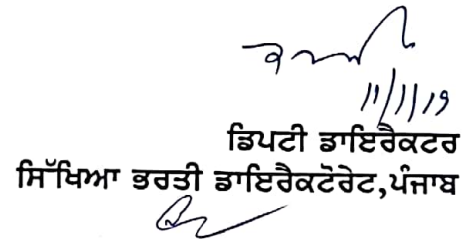 11/1/19
ਡਿਪਟੀ ਡਾਇਰੈਕਟਰ
ਸਿੱਖਿਆ ਭਰਤੀ ਡਾਇਰੈਕਟੋਰੇਟ,ਪੰਜਾਬ